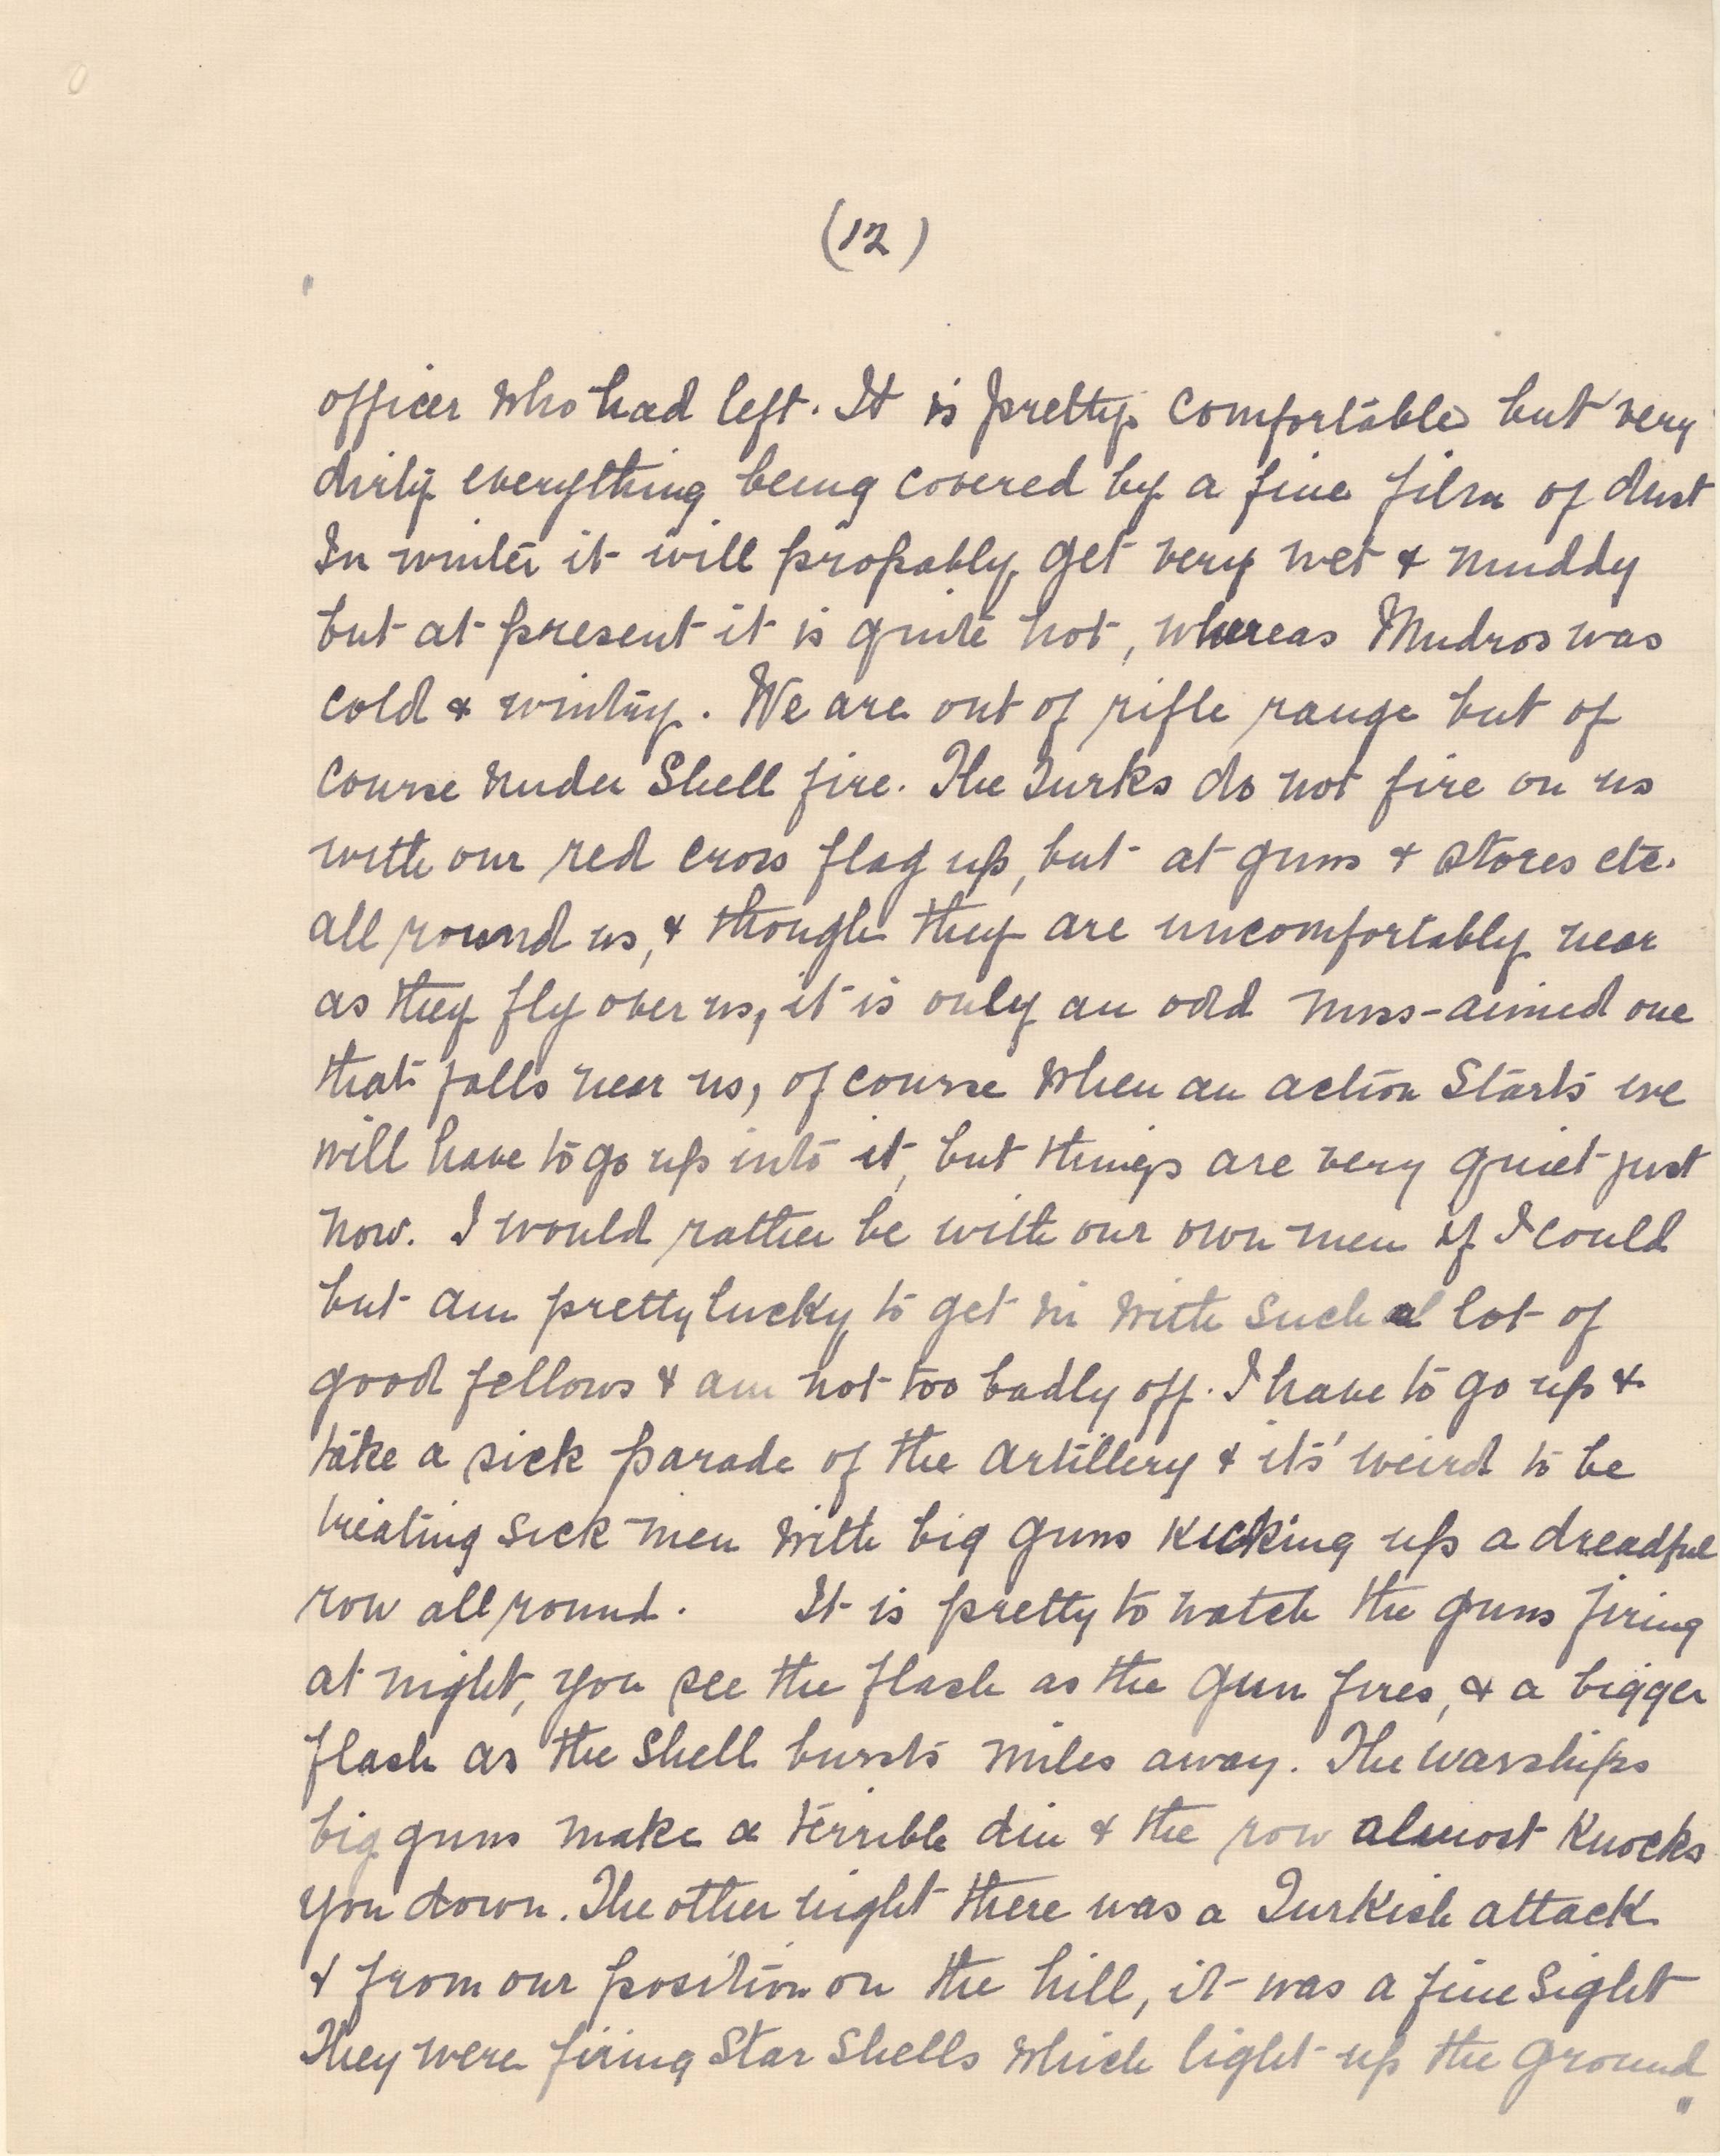 (12)
officer who had left. It is pretty comfortable but very
dirty everything being covered by a fine film of dust
In winter it will propably get very wet & muddy
but at present it is quite hot, whereas Mudros was
cold & wintry. We are out of rifle range but of
course under shell fire. The Turks do not fire on us
with our red cross flag up, but at guns & stores etc.
all round us, & though they are uncomfortably near
as they fly over us, it is only an odd miss-aimed one
that falls near us, of course when an action starts we
will have to go up into it, but things are very quiet just
now. I would rather be with our own men if I could
but am pretty lucky to get in with such a lot of
good fellows & am not too badly off. I have to go up &
take a sick parade of the artillery & its' weird to be
treating sick men with big guns kicking up a dreadful
row all round. It is pretty to watch the guns firing
at night, you see the flash as the gun fires, & a bigger
flash as the shell bursts miles away. The warships
big guns make a terrible din & the row almost knocks
you down. The other night there was a Turkish attack
& from our position on the hill, it was a fine sight
They were firing star shells which light up the ground